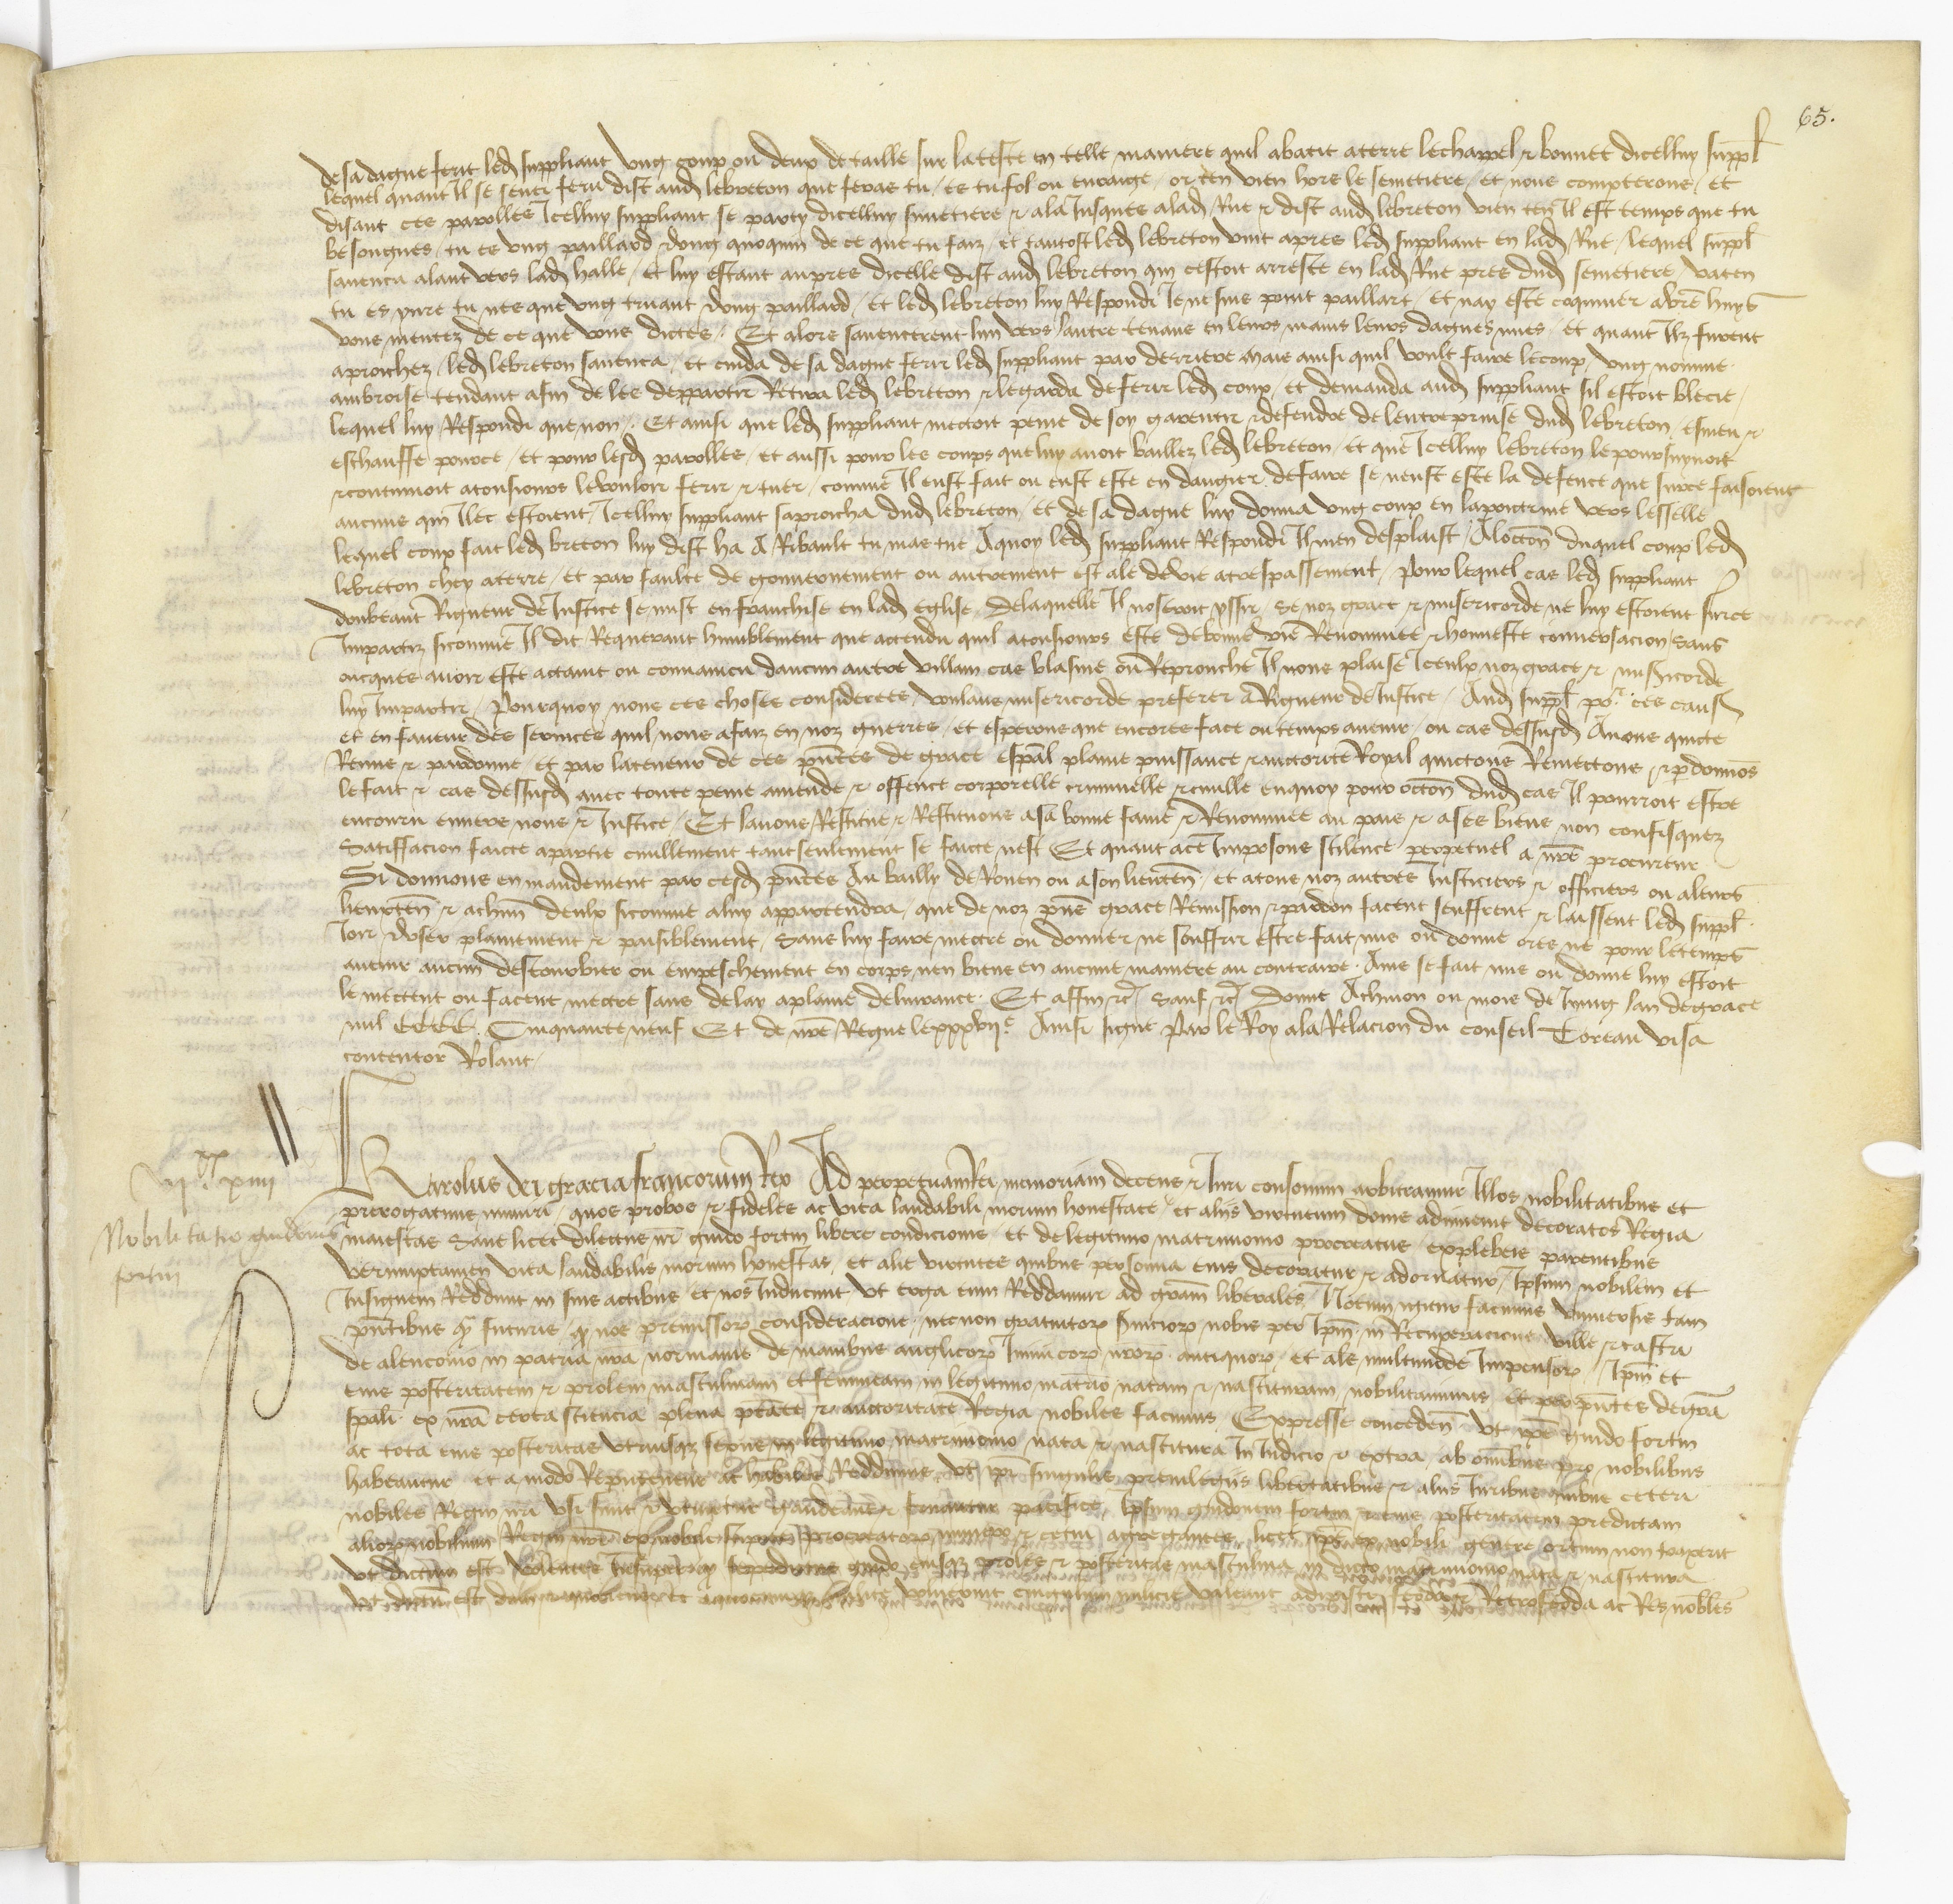 65.
de sa dague ferit led suppliant ung coup ou deux de taille sur la teste en telle maniere quil abatit a terre le chappel et bonnet dicelluy suppl
lequel quant il se senti feru dist aud lebreton que feras tu / es tu fol ou enraige / or ten vien hors le semetiere / et nous compterons / et
disant ces parolles Icelluy suppliant se party dicelluy simetiere et ala Jusques a lad Rue et dist aud lebreton vien ten Il est temps que tu
besongnes / tu es ung paillard dung quoquin de ce que tu faiz / et tantost led lebreton vint apres led suppliant en lad Rue / lequel suppl
savenca alant vers lad halle / et luy estant aupres dicelle dist aud lebreton qui cestoit arreste en lad Rue pres dud semetiere / vaten
tu es yure tu nes que ung truant dung paillard / et led lebreton luy Respondi Je ne suis point paillart / et nay este coquiner huys
vous mentez de ce que vous dictes / Et alors savencerent lun vers lautre tenans en leurs mains leurs dagues nues / et quant Ilz furent
aprochez / led lebreton savenca / et cuida de sa dague ferir led suppliant par derriere mais ainsi quil voult faire le coup / ung nomme
ambroise tendant afin de les deppartir Retira led lebreton et le garda de ferir led coup / et demanda aud suppliant sil estoit blecie /
lequel luy Respondi que non / Et ainsi que led suppliant mectoit peine de soy garentir et defendre de lentreprinse dud lebreton / esmeu et
eschauffe pource / et pour lesd parolles / et aussi pour les coups que luy avoit baillez led lebreton / et que Icelluy lebreton le poursuyvoit
et continuoit a tousiours le vouloir ferir et tuer / comme Il eust fait ou eust este en dangier de faire se neust este la defence que surce faisoient
aucuns qui Illec estoient / Icelluy suppliant saproucha dud lebreton / et de sa dague luy donna ung coup en la poictrine vers lesselle
lequel coup fait led breton luy dist ha A Ribault tu mas tue A quoy led suppliant Respondi Il men desplaist / A loccon duquel coup led
lebreton chey a terre / et par faulte de gouvernement ou autrement est ale de vie a trespassement / Pour lequel cas led suppliant
doubtant Rigueur de Justice se mist en franchise en lad eglise / de laquelle Il noseroit yssir / se noz grace et misericorde ne luy estoient surce
Imparties sicomme Il dit Requerant humblement que actendu quil a tousiours este de bonne vie Renommee et honneste conversacion sans
oncques avoir este actaint ou convaincu daucun autre villain cas blasme ou Reprouche Il nous plaise Iceulx noz grace et misericorde
luy Impartir / Pourquoy nous ces choses considerees / voulans misericorde preferer a Rigueur de Justice / Aud suppl por ces causes
et en faveur des services quil nous a faiz en noz guerres / et esperons que encores face ou temps avenir / ou cas dessusd Avons quicte
Remis et pardonne / et par la teneur de ces pntes de grace espal plaine puissance et auctorite Royal quictons Remectons et pdonnos
le fait et cas dessusd avec toute peine amende et offence corporelle criminelle et civille en quoy pour occon dud cas Il pourroit estre
encouru envers nous et Justice / Et lavons Restitue et Restituons a sa bonne fame et Renommee au pais et a ses biens non confisquez
Satiffacion faicte a partie civillement tant seulement se faicte nest Et quant a ce Imposons silence perpetuel a nre procureur
Si donnons en mandement par cesd pntes Au bailly de Rouen ou a son lieuten / et a tous noz autres Justiciers et officiers ou a leurs
lieuxten et a chun deulx sicomme a luy appartendra / que de noz pnte grace Remission et pardon facent seuffrent et laissent led suppl
Joir et user plainement et paisiblement / Sans luy faire mectre ou donner ne souffrir estre fait mis ou donne ores ne pour le temps
avenir aucun destourbier ou empeschement en corps nen biens en aucune maniere au contraire / Ains se fait mis ou donne luy estoit
le mectent ou facent mectre sans delay a plaine delivrance Et affin etc Sauf etc Donne A chinon ou mois de Juing lan de grace
mil CCCC Cinquante neuf Et de nre Regne le xxxvije Ainsi signe Par le Roy a la Relacion du conseil Toreau visa
contentor Rolant
vi xx xiiii
Nobilitatio guidonis fortin
Karolus dei gracia francorum Rex Ad perpetuam Rei memoriam decens et Juri consonum arbitramur Illos nobilitatibus et
prerogativis muniri / quos probos et fideles ac vita laudabili morum honestate et aliis virtutum donis adinvenit decoratos Regia
maiestas Sane licet dilectus nr guido fortin libere condicionis / et de legitimo matrimonio procreatus / ex plebeis parentibus
verumptamen vita laudabilis morum honestas / et alie virtutes quibus persona eius decoratur et adornatur / Ipsum nobilem et
Insignem Reddunt in suis actibus / et nos Inducunt ut erga eum Reddamur ad gram liberales / Notum igitur facimus universis tam
pntibus q futuris / q nos premissor consideracione / necnon gratuitor servicior nobis per Ipm in Recuperacione ville et castri
de alenconio in patria nra normanie de manibus anglicor Inimicor nror antiquor / et als multimode Impensor / Ipm et
eius posteritatem et prolem masculinam et femineam in legitimo matrio natam et nascituram / nobilitavimus et per pntes de gra
spali ex nra certa sciencia plena ptate et auctoritate Regia nobiles facimus Expresse conceden ut ipe guido fortin
ac tota eius posteritas utriusq sexus in legitimo matrimonio nata et nascitura In Judicio et extra / ab omibus pro nobilibus
habeantur et a modo Reputentur ac habiles Reddimus ut ipi singulis previlegiis libertatibus et aliis Juribus quibus ceteri
nobiles Regni nri usi sunt et utuntur gaudeant et fruantur pacifice / Ipsum guidonem fortin et eius posteritatem predictam
alior nobilium Regni nri ex nobili stirpe procreator numero et cetui agregantes / licet ipe ex nobili genere ortum non traxerit
ut dictum est guido eiusq proles et posteritas masculina in dicto matrimonio nata et nascitura
ut dictum est voluerint cingulum milicie valeant adipisci feodaq et Retrofeoda ac Res nobiles